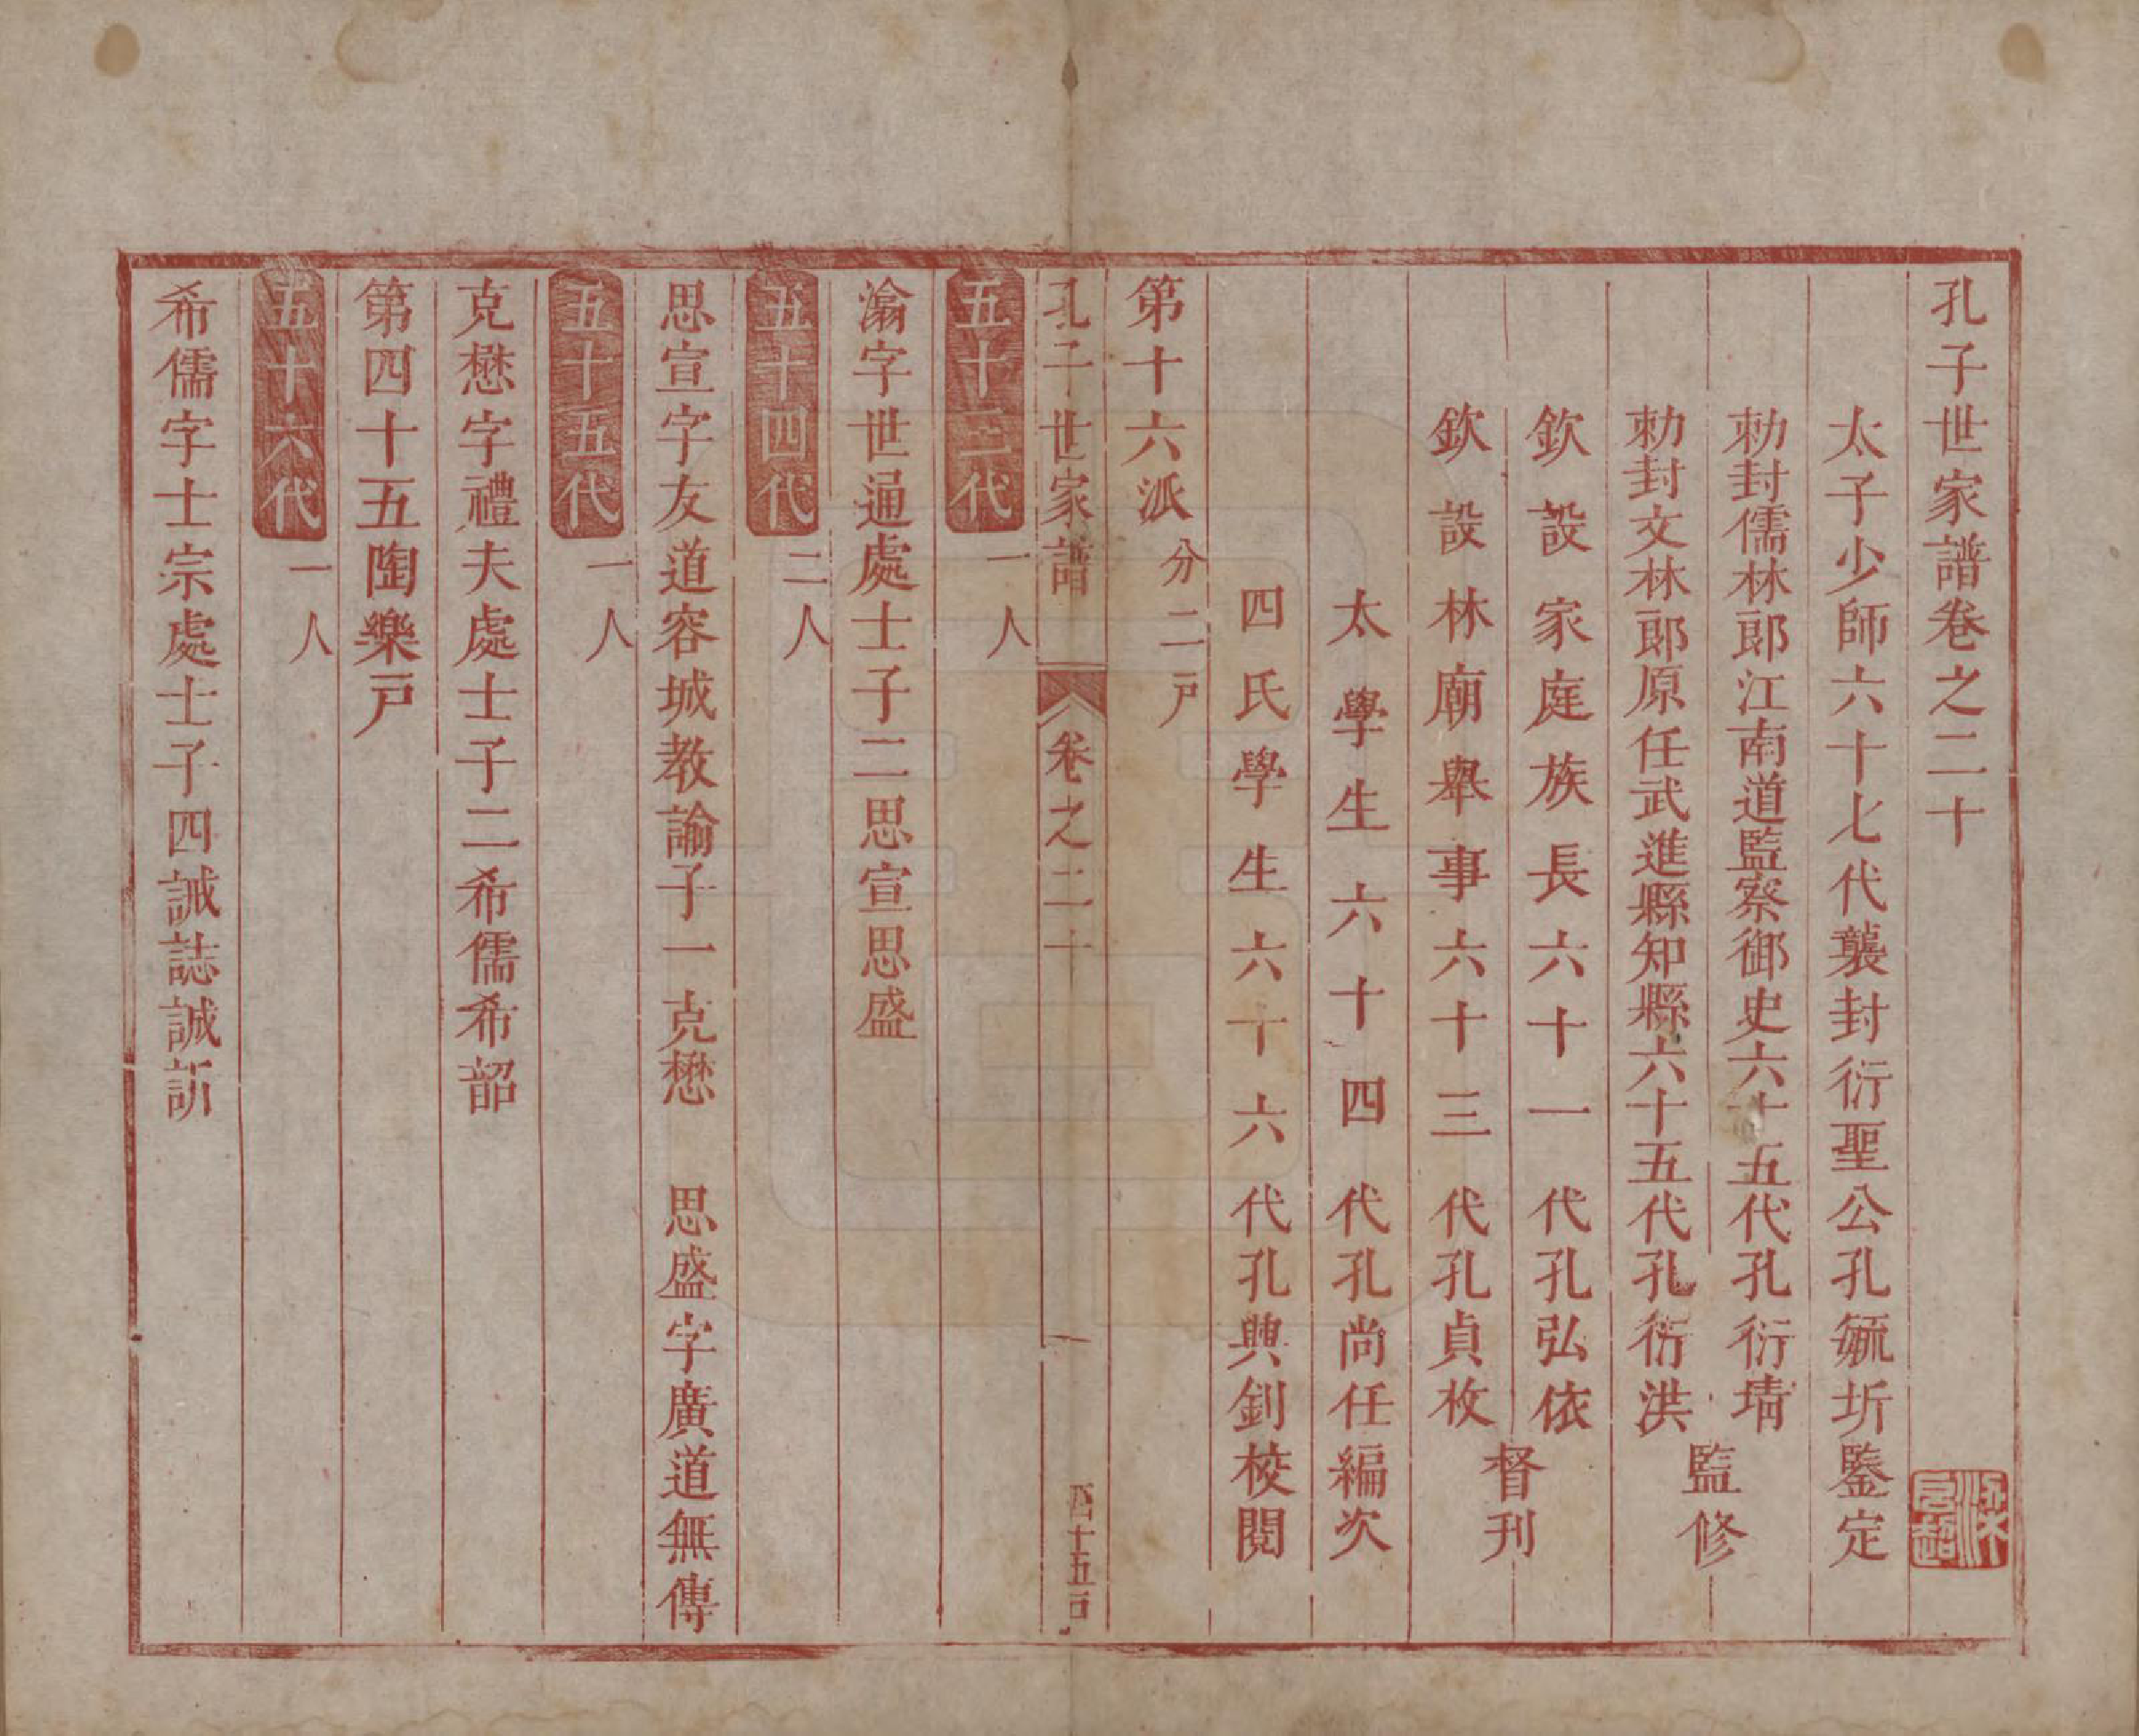 孔子世家譜卷之二十
太子少師六十七代襲封衍聖公孔毓圻鑒定
勅封儒林郎江南道監察御史六十五代孔衍堉
勅封文林郎原任武進縣知縣六十五代孔衍洪
監修
欽設家庭族長六十一代孔弘依
欽設林廟舉事六十三代孔貞枚
督刊
太學生六十四代孔尚任編次
四氏學生六十六代孔興釗校閱
第十六派 分二戸
孔子世家譜 卷之二十 一 四十五戸
五十三代 一人
瀹字世通處士子二思宣思盛
五十四代 二人
思宣字友道容城教諭子一克懋 思盛字廣道無傳
五十五代 一人
克懋字禮夫處士子二希儒希韶
第四十五陶樂戸
五十六代 一人
希儒字士宗處士子四諴誌誠訢